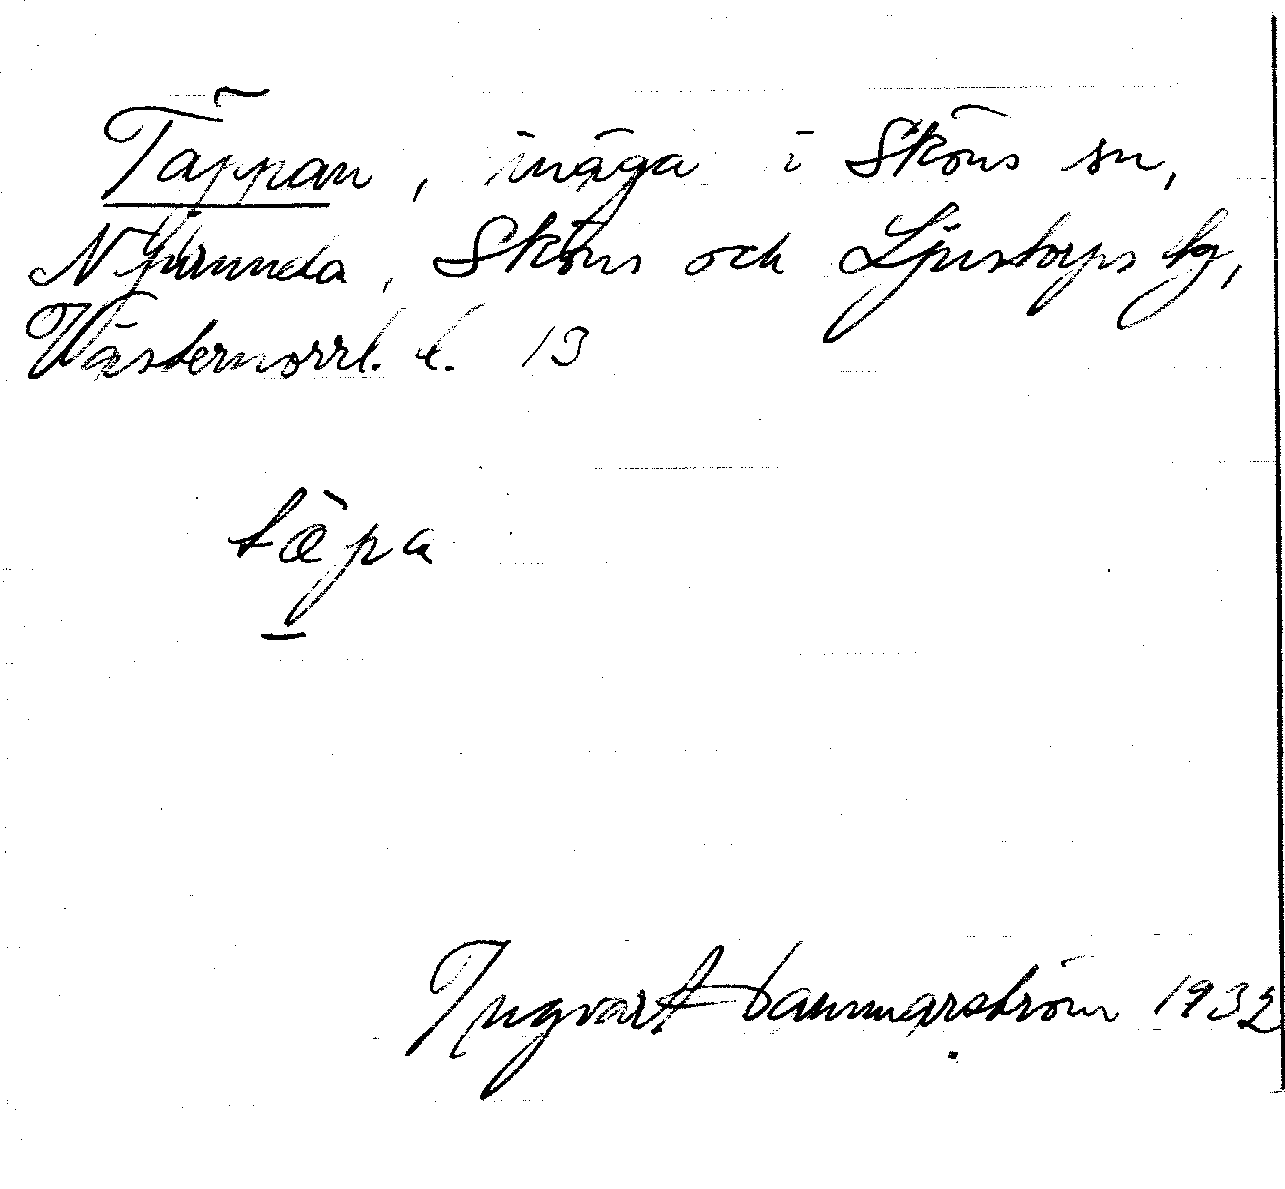 Täppan, inäga i Sköns sn,
Njurunda, Sköns och Ljustorps tg,
Västernorrl. l. 13
tæ̀pa
Ingvart Hammarström 1932